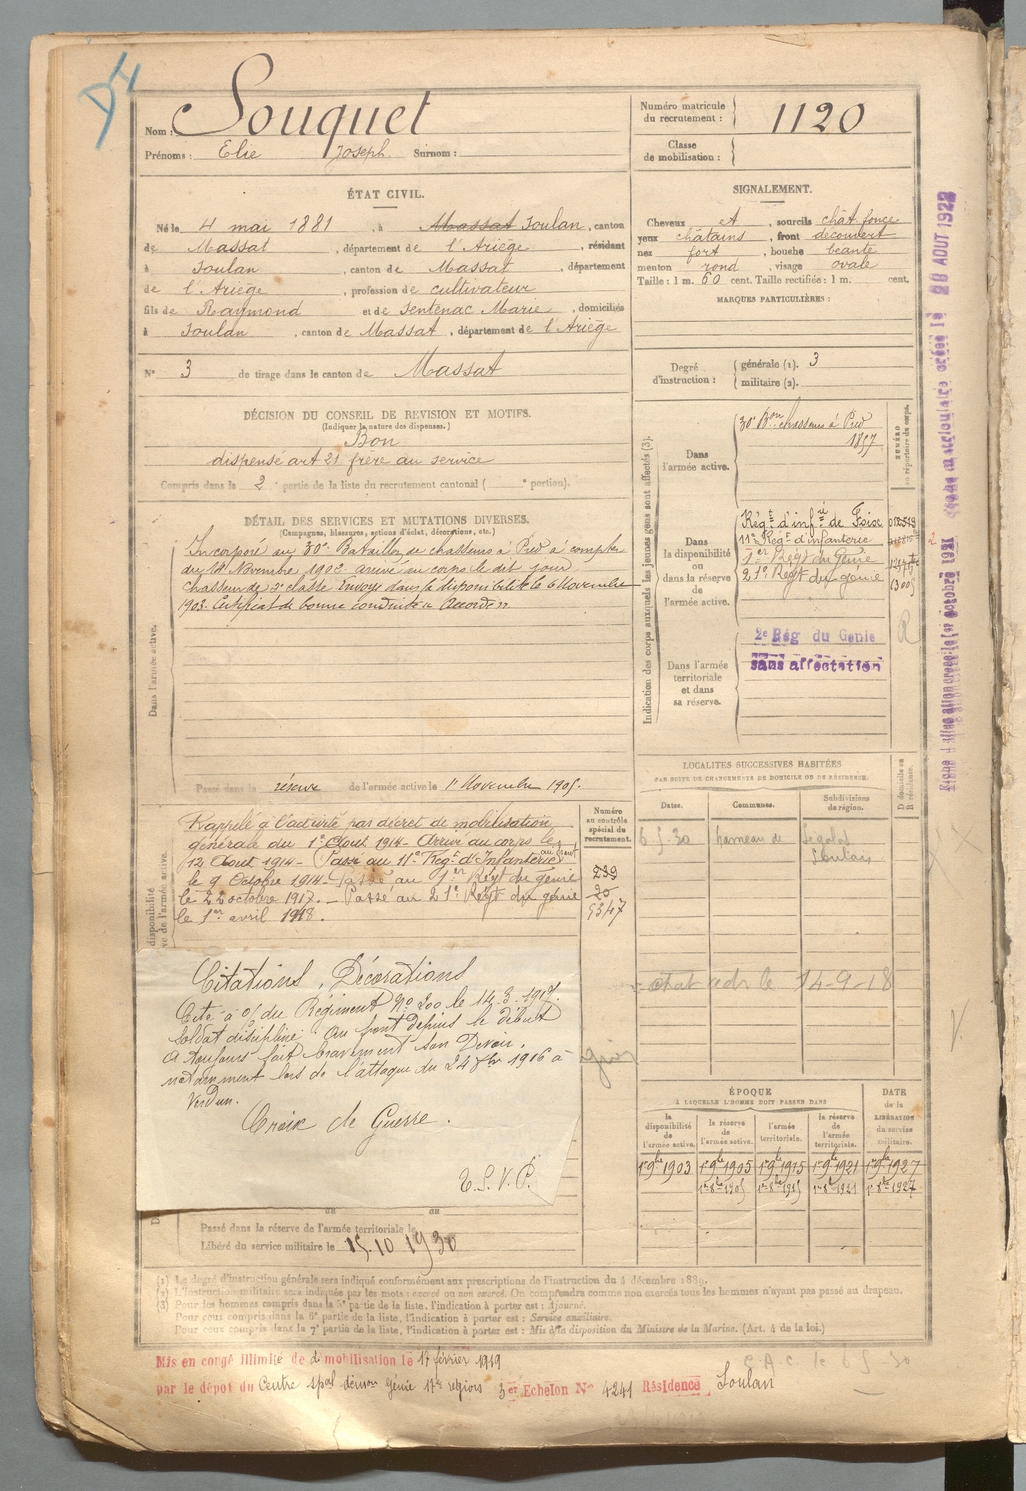 Nom : Souquet
Prénoms : Elie Joseph Surnom :
Numéro matricule du recrutement : 1120
Classe de mobilisation :
ÉTAT CIVIL.
Né le 4 mai 1881, à Massat Soulan, canton
de Massat, département de l'Ariège, résidant
à Soulan, canton de Massat, département
de l'Ariège, profession de cultivateur
fils de Raymond et de Sentenac Marie, domiciliés
à Soulan, canton de Massat, département de l'Ariège
N° 3 de tirage dans le canton de Massat
SIGNALEMENT.
Cheveux et, sourcils chât foncé
yeux châtains, front découvert
nez fort, bouche béante
menton rond, visage ovale
Taille : 1 m. 60 cent. Taille rectifiée : 1 m. cent.
MARQUES PARTICULIÈRES :
Degré d'instruction : générale (1). 3
militaire (2).
DÉCISION DU CONSEIL DE REVISION ET MOTIFS.
(Indiquer la nature des dispenses.)
Bon
dispensé art 21 frère au service
Compris dans la 2e partie de la liste du recrutement cantonal ( e portion).
DÉTAIL DES SERVICES ET MUTATIONS DIVERSES.
(Campagnes, blessures, actions d'éclat, décorations, etc.)
Dans l'armée active.
Incorporé au 30e Bataillon de chasseurs à Pied à compter
du 14 Novembre 1902 arrivé au corps le dit jour
chasseur de 2e classe Envoyé dans la disponibilité le 6 Novembre
1903. Certificat de bonne conduite "Accordé"
Passé dans la réserve de l'armée active le 1er Novembre 1905.
Indication des corps auxquels les jeunes gens sont affectés (3).
NUMÉRO au répertoire du corps.
Dans l'armée active.
30e Bon chasseurs à Pied
1857
Dans la disponibilité ou dans la réserve de l'armée active.
Régt d'infrie de Foix
11e Régt d'infanterie
1er Régt du Génie
21e Régt du génie
Dans l'armée territoriale et dans sa réserve.
2e Rég du Génie
sans affectation
R
LOCALITÉS SUCCESSIVES HABITÉES
PAR SUITE DE CHANGEMENTS DE DOMICILE OU DE RÉSIDENCE.
Dates.
Communes.
Subdivisions de région.
D domicile ou R résidence.
6 5-30 hameau de
Soulan
14-9-18
Numéro au contrôle spécial du recrutement.
239
20
5347
Rappelé à l'activité par décret de mobilisation
générale du 1er Août 1914 - Arrivé au corps le
12 Août 1914 - Passé au 11e Régt d'Infanterie au front
le 9 Octobre 1914 - Passé au 1er Régt du génie
le 22 octobre 1917. - Passé au 21e Régt du génie
le 1er avril 1918.
Citations, Décorations
Cité à o/ du Régiment No 200 le 14.3.1917.
Soldat discipliné. Au front depuis le début
A toujours fait bravement son Devoir,
notamment lors de l'attaque du 24 8bre 1916 à
Verdun.
Croix de Guerre.
T.S.V.P.
ÉPOQUE
À LAQUELLE L'HOMME DOIT PASSER DANS
la disponibilité de l'armée active.
la réserve de l'armée active.
l'armée territoriale.
la réserve de l'armée territoriale.
DATE de la LIBÉRATION du service militaire.
1er 9bre 1903 1er 9bre 1905 1er 9bre 1915 1er 9bre 1921 1er 9bre 1927
1er 8bre 1905 1er 8bre 1915 1er 8bre 1921 1er 8bre 1927
Passé dans la réserve de l'armée territoriale le
Libéré du service militaire le 15.10 1930
(1) Le degré d'instruction générale sera indiqué conformément aux prescriptions de l'instruction du 4 décembre 1889.
(2) L'instruction militaire sera indiquée par les mots : exercé ou non exercé. On comprendra comme non exercés tous les hommes n'ayant pas passé au drapeau.
(3) Pour les hommes compris dans la 5e partie de la liste, l'indication à porter est : Ajourné.
Pour ceux compris dans la 6e partie de la liste, l'indication à porter est : Service auxiliaire.
Pour ceux compris dans la 7e partie de la liste, l'indication à porter est : Mis à la disposition du Ministre de la Marine. (Art. 4 de la loi.)
Mis en congé illimité de démobilisation le 17 février 1919
par le dépôt du Centre spal démon génie 17e région 3er Echelon No 4241 Résidence Soulan